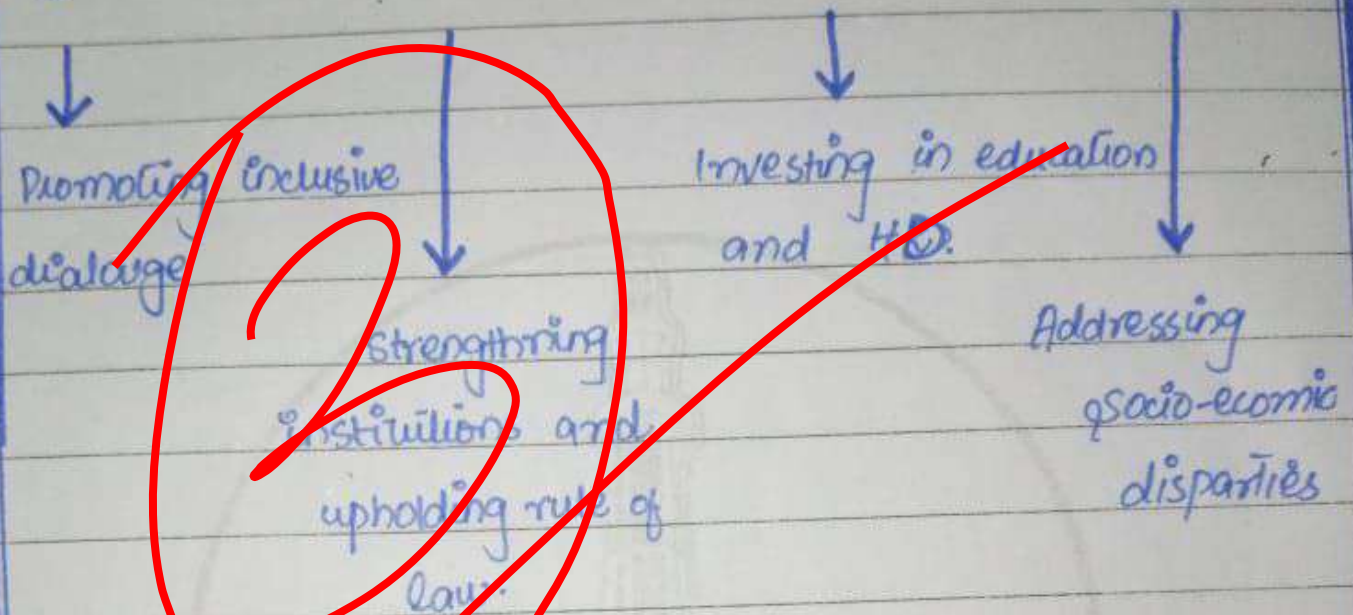 Promoting inclusive
dialouge
Strengthning
institutions and
upholding rule of
law.
Investing in education
and
Addressing
socio-ecomic
disparties
3